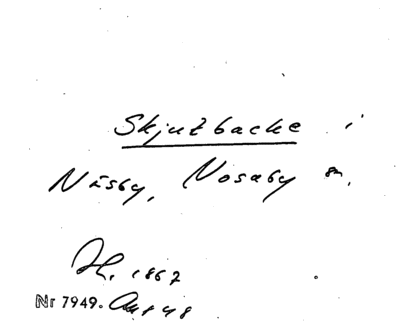 Skjutbacke i
Näsby, Nosaby sn,
1867
Nr 7949.